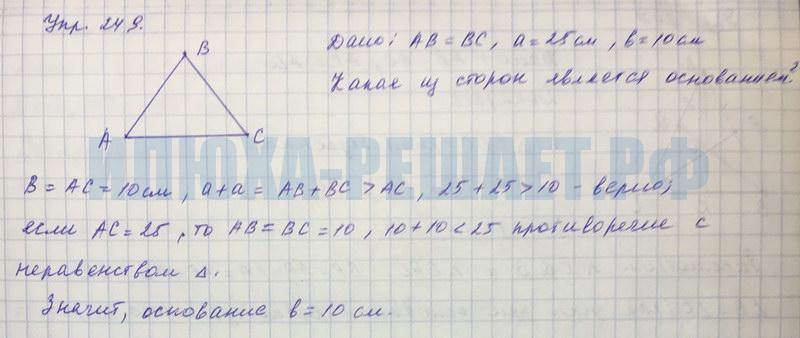 Упр. 249.
B
A
C
Дано: AB = BC, a = 25 см, b = 10 см
Какая из сторон является основанием?
ИЛЮХА-РЕШАЕТ.РФ
B = AC = 10 см, a + a = AB + BC > AC, 25 + 25 > 10 - верно;
если AC = 25, то AB = BC = 10, 10 + 10 < 25 противоречие с
неравенством Δ.
Значит, основание b = 10 см.